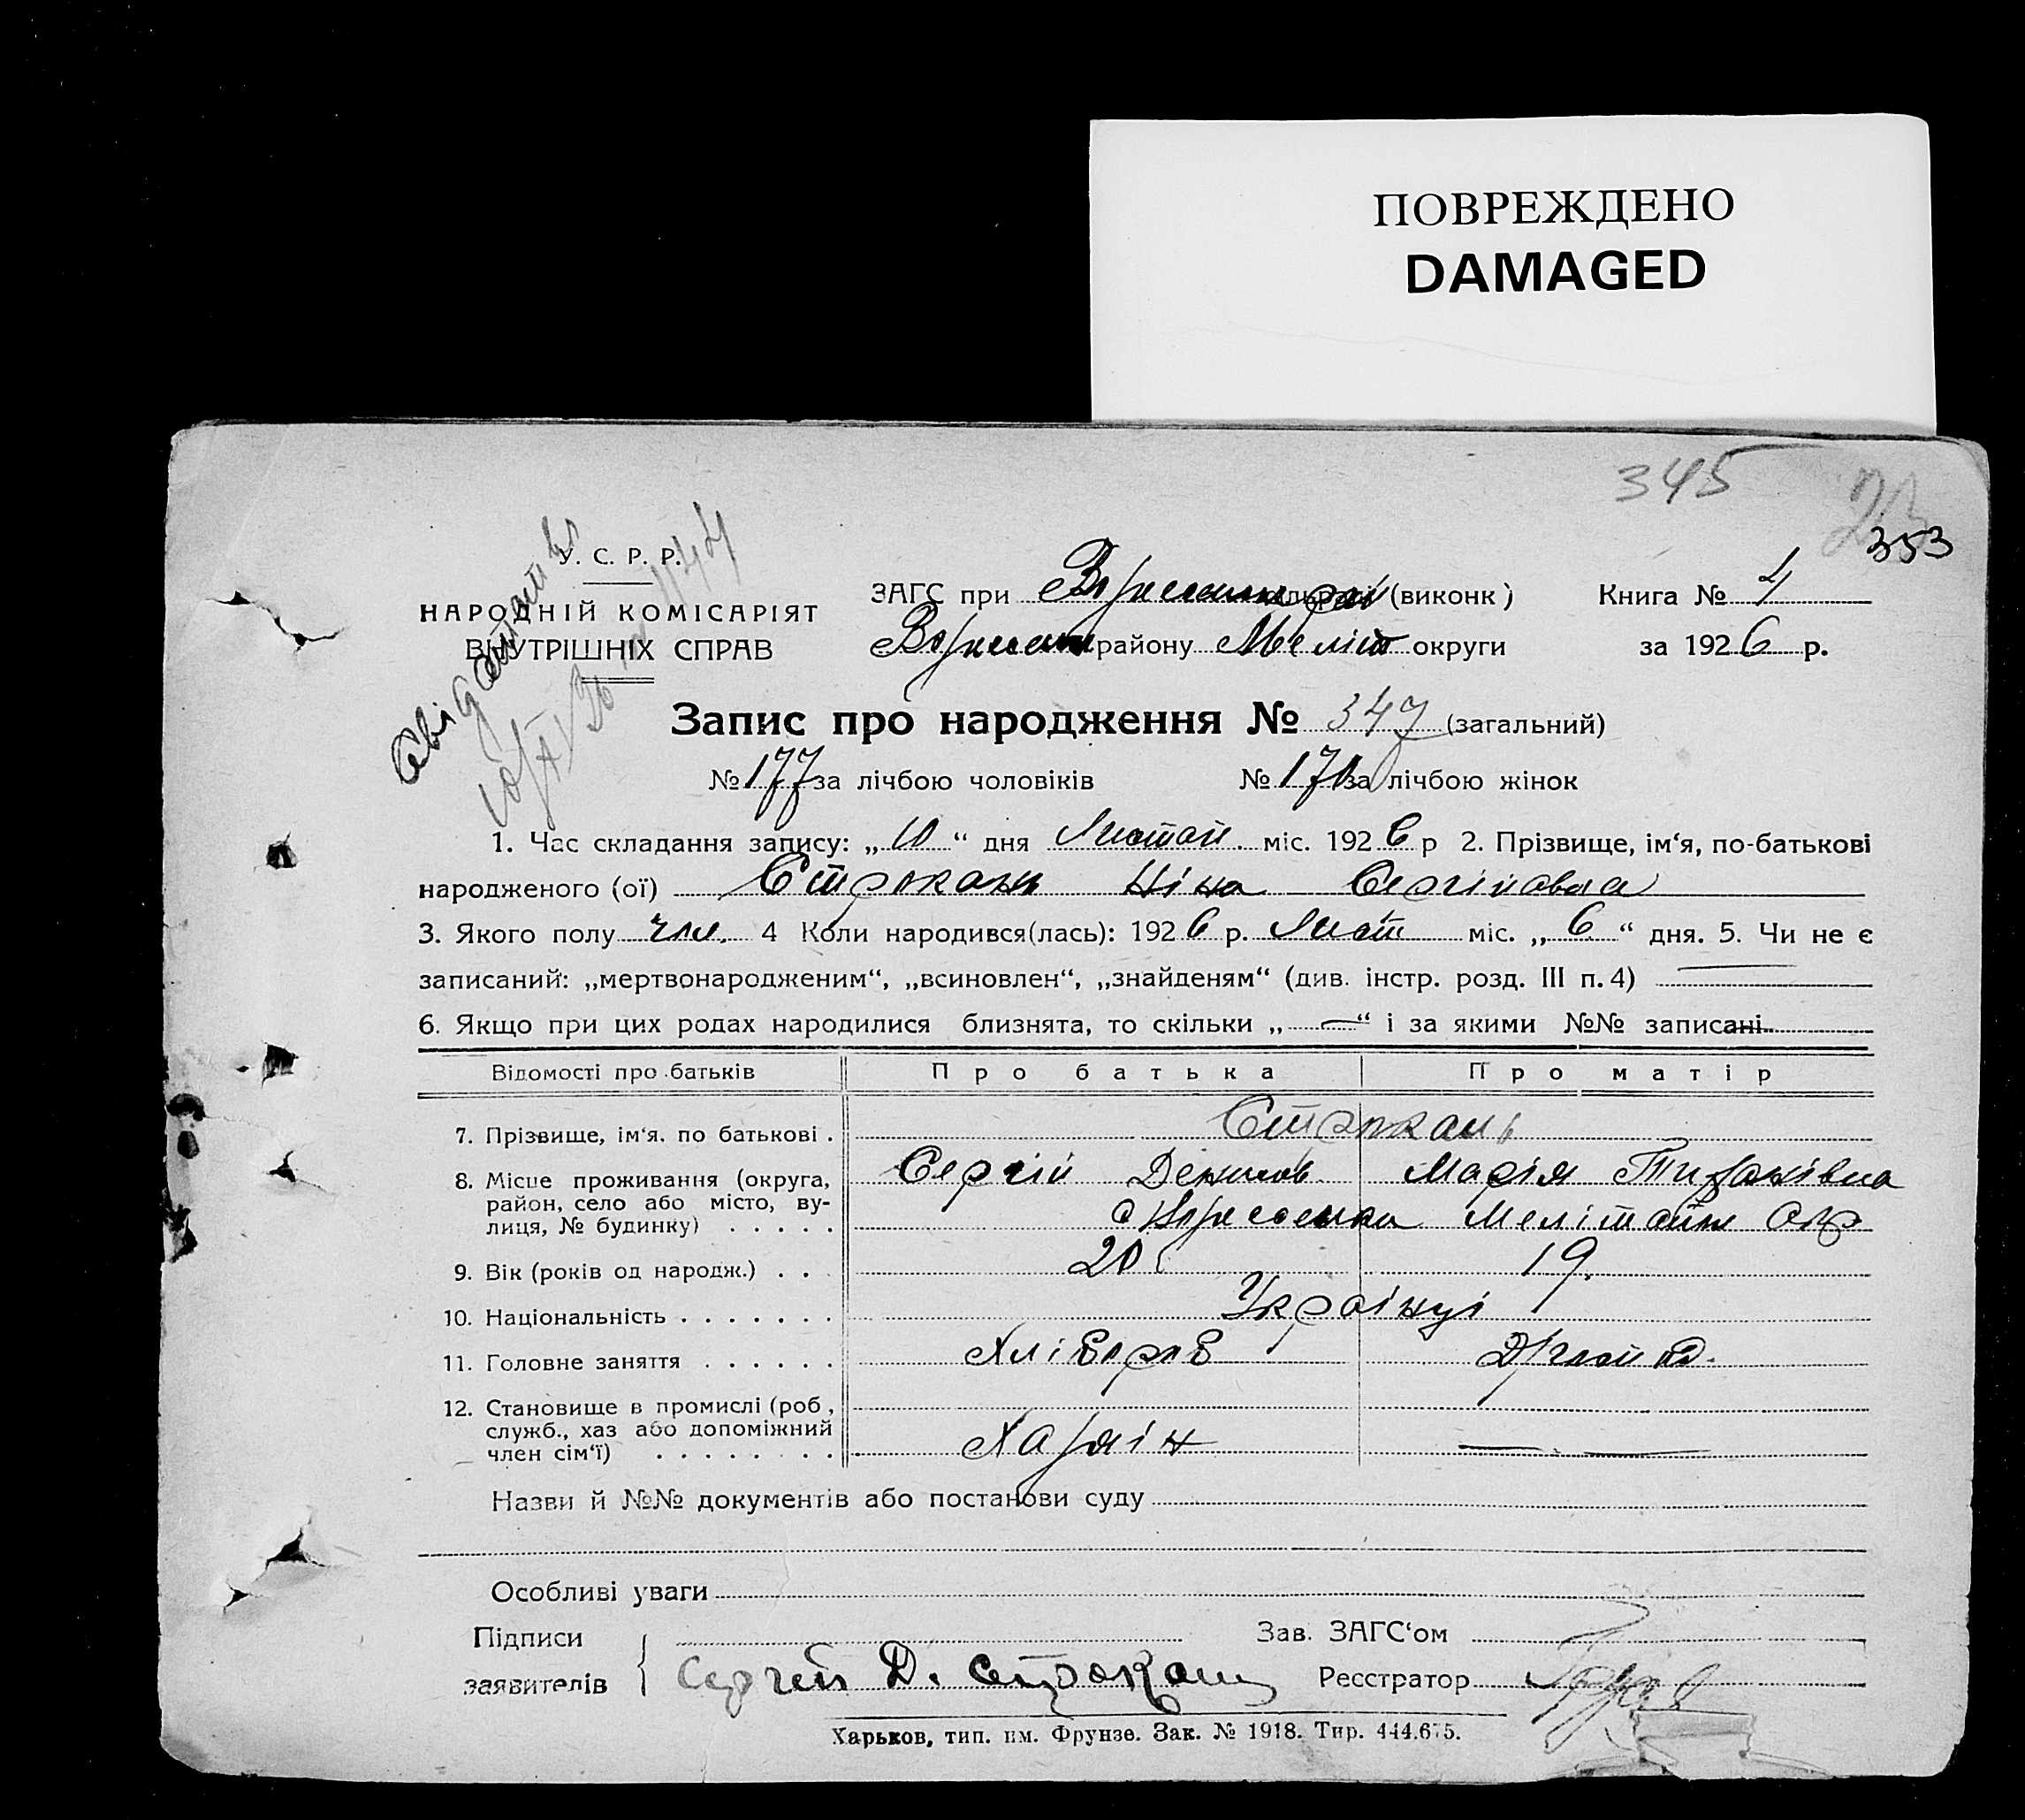 ПОВРЕЖДЕНО
DAMAGED
345
353
У. С. Р. Р.
НАРОДНІЙ КОМІСАРІЯТ
ВНУТРІШНІХ СПРАВ
ЗАГС при (виконк)
району Меліт округи
Книга № 4
за 1926 р.
Запис про народження № 347 (загальний)
№ 177 за лічбою чоловіків № 170 за лічбою жінок
1. Час складання запису: „10“ дня Листоп. міс. 1926 р 2. Прізвище, ім‘я, по-батькові
народженого (ої) Строкань Ніна Сергіовна
3. Якого полу 4 Коли народився(лась): 1926 р. Лист міс. „6“ дня. 5. Чи не є
записаний: „мертвонародженим“, „всиновлен“, „знайденям“ (див. інстр. розд. III п. 4)
6. Якщо при цих родах народилися близнята, то скільки „—“ і за якими №№ записані
Відомості про батьків Про батька Про матір
7. Прізвище, ім‘я, по батькові . Строкань
8. Місце проживання (округа, Сергій Марія
район, село або місто, ву-
лиця, № будинку) . . . . .
9. Вік (років од народж.) . . 20 19.
10. Національність . . . . . . . Українці
11. Головне заняття . . . . . . Хлібороб
12. Становище в промислі (роб,
служб., хаз або допоміжний
член сім‘ї) . . . . . . . Хазяін —
Назви й №№ документів або постанови суду
Особливі уваги
Підписи Зав. ЗАГС‘ом
заявителів Сергей Д. Строкань Реєстратор
Харьков, тип. им. Фрунзе. Зак. № 1918. Тир. 444.675.